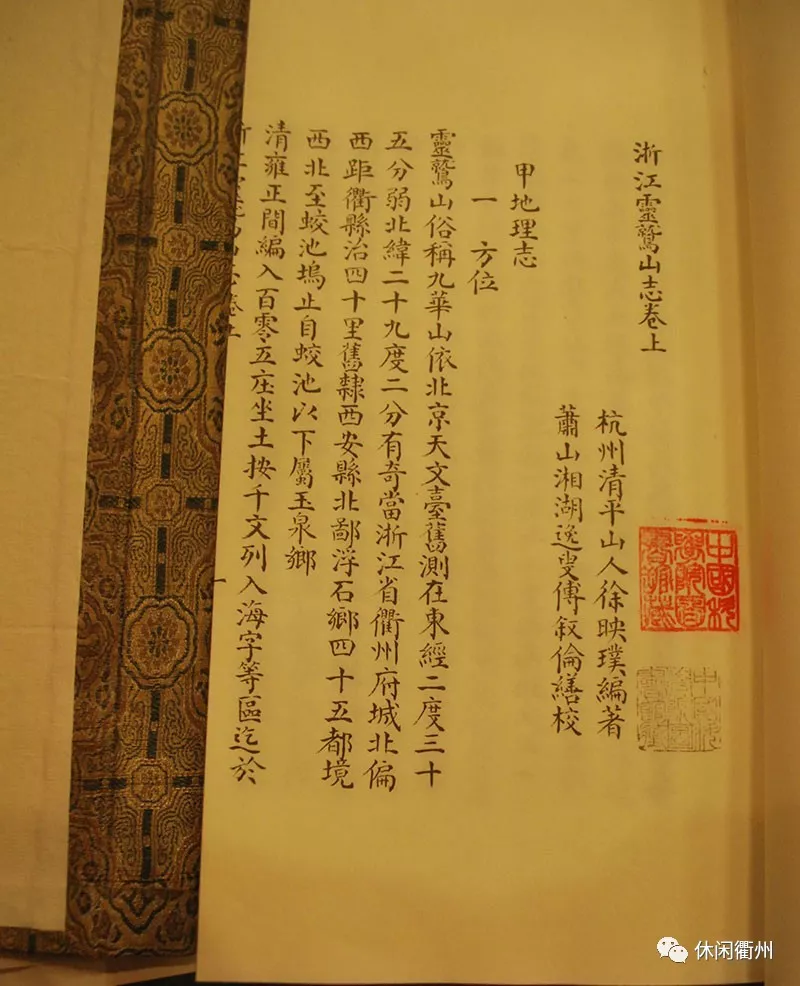 浙江靈鷲山志卷上
杭州清平山人徐映璞編著
蕭山湘湖逸叟傅叙倫繕校
甲地理志
一 方位
靈鷲山俗稱九華山依北京天文臺舊測在東經二度三十
五分弱北緯二十九度二分有奇當浙江省衢州府城北偏
西距衢縣治四十里舊隸西安縣北鄙浮石鄉四十五都境
西北至蛟池塢止自蛟池以下屬玉泉鄉
清雍正間編入百零五庄坐土按千文列入海字等區迄於
休闲衢州